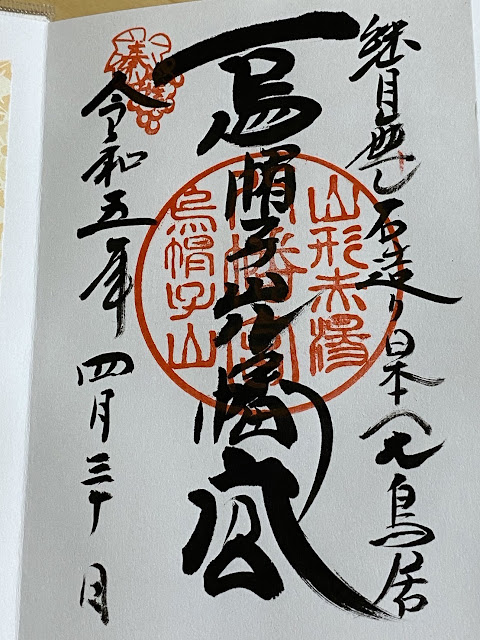 継目無し石造り日本一大鳥居
烏帽子山八幡宮
令和五年 四月三十日
山形赤湯
八幡宮
烏帽子山